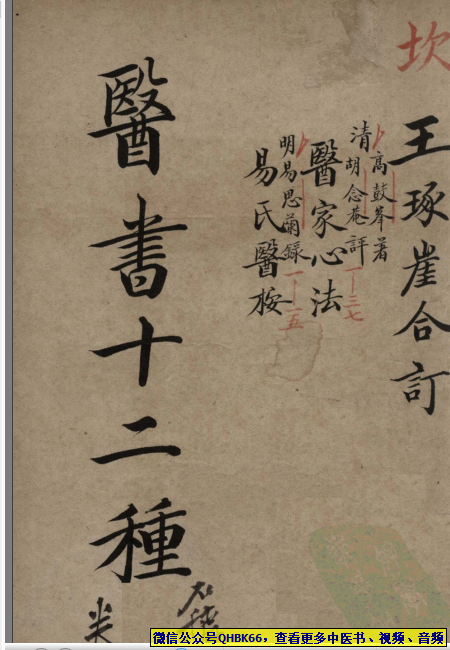 坎
王琢崖合訂
清
高鼓峯著
胡念菴評
醫家心法
一—三七
明易思蘭錄
易氏醫按
一—一五
醫書十二種
微信公众号QHBK66，查看更多中医书、视频、音频